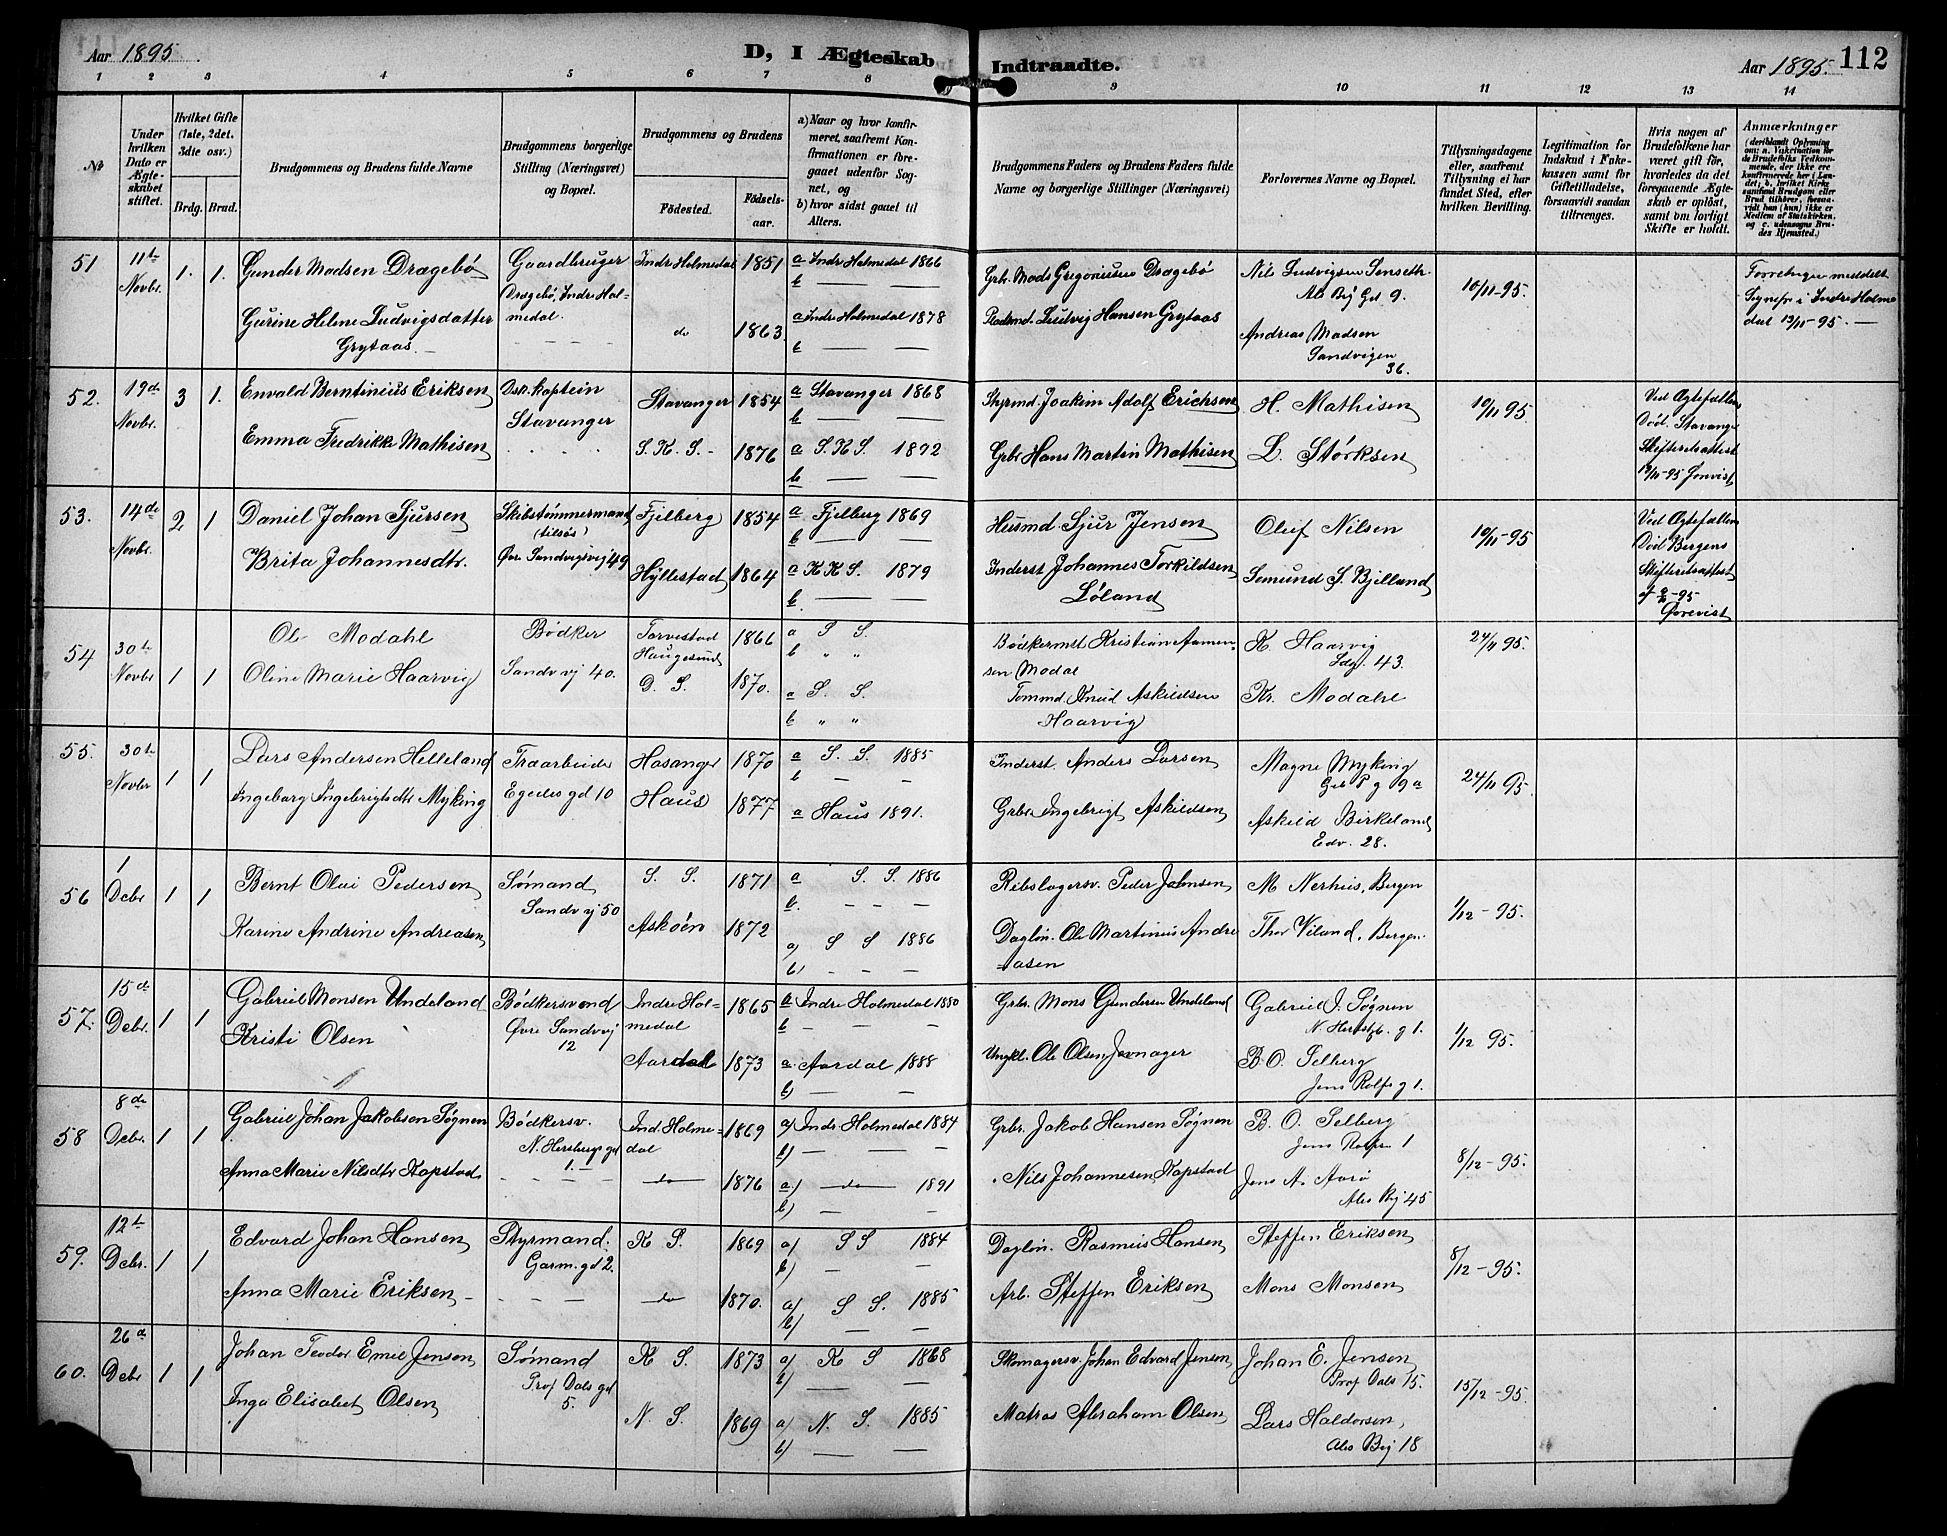 Aar 1895.
D, I Ægteskab Indtraadte.
Aar 1895. 112
1 2 3 4 5 6 7 8 9 10 11 12 13 14
No
Under hvilken Dato er Ægteskabet stiftet.
Hvilket Gifte (1ste, 2det, 3die osv.)
Brdg. Brud.
Brudgommens og Brudens fulde Navne
Brudgommens borgerlige Stilling (Næringsvei) og Bopæl.
Brudgommens og Brudens
Fødested.
Fødselsaar.
a) Naar og hvor konfirmeret, saafremt Konfirmationen er foregaaet udenfor Sognet, og
b) hvor sidst gaaet til Alters.
Brudgommens Faders og Brudens Faders fulde Navne og borgerlige Stillinger (Næringsvei)
Forlovernes Navne og Bopæl.
Tillysningsdagene eller, saafremt Tillysning ei har fundet Sted, efter hvilken Bevilling.
Legitimation for Indskud i Enkekassen samt for Giftetilladelse, forsaavidt saadan tiltrænges.
Hvis nogen af Brudefolkene har været gift før, hvorledes da det foregaaende Ægteskab er opløst, samt om lovligt Skifte er holdt.
Anmærkninger (deriblandt Oplysning om: a. Vakcination for de Brudefolks Vedkommende, der ikke ere konfirmerede her i Landet; b. hvilket Kirkesamfund Brudgom eller Brud tilhører, forsaavidt han (hun) ikke er Medlem af Statskirken, og c. udensogns Brudes Hjemsted.)
51 11te Novbr. 1. 1.
Gunder Madsen Drægebø
Gaardbruger Drægebø, Indre Holmedal.
Indr. Holmedal 1851
a Indr Holmedal 1866
b — — —
Grbr. Mads Gregoriussen Drægebø
Nils Ludvigsen Senseth. Als Bj Gd 9.
10/11-95.
Forretnингen meddelt Sognepr i Indre Holmedal 13/11-95. —
Gurine Helene Ludvigsdatter Grytaas. —
do 1863
a Indr Holmedal 1878
b — —
Pladsmd. Ludvig Hansen Grytaas
Andreas Madsen Sandvigen 36.
52. 19de Novbr. 3 1.
Envald Berntinius Eriksen
Dsk. kaptein Stavanger
Stavanger 1854
a Stavanger 1868
b — —
Styrmd. Joakim Adolf Erichsen
H. Mathisen
10/11 95
Ved Ægtefællens Død. Stavanger Skifteretsattest 12/11-95 forevist
Emma Fredrikke Mathisen
S. K. S. - 1876
a S. K S. 1892
b — —
Grbr Hans Martin Mathisen
L. Størksen
53. 14de Novbr. 2 1
Daniel Johan Sjursen
Skibstømmermand (tilsøs) Øvre Sandvigsvej 49
Fjelberg 1854
a Fjelberg 1869
b — —
Husmd Sjur Jensen
Oluf Nilsen
10/11-95
Ved Ægtefællens Død Bergens Skifteretsattest forevist
Brita Johannesdtr.
Hyllestad 1864
a K K S. 1879
b. — —
Inderst Johannes Torkildsen Løland
Semund S. Bjelland
54 30te Novbr 1 1
Ole Modahl
Bødker Sandvvj 40.
Torvestad Haugesund 1866
a S S.
b " "
Bødkermst Kristian Aamensen Modal
K. Haarvig 43.
24/11 95.
Oline Marie Haarvig
D. S. 1870.
a S. S.
b " "
Tømmd. Knud Askildsen Haarvig
Kr. Modahl
55. 30te Novbr 1 1
Lars Andersen Helleland
Traarbeider Egedes gd 10
Hosanger 1870
a S. S. 1885
b — —
Inderst. Anders Larsen
Magne Myking 9a
24/11 95.
Ingeborg Ingebrigtsdtr Myking
Haus 1877
a Haus 1891.
Grbr. Ingebrigt Askildsen
Askild Birkeland Edv. 28.
56 1 Debr 1 1
Bernt Olai Pedersen
Sømand Sandvvj 50
S. S. 1871
a S. S. 1886
b. - - -
Rebslagersv. Peder Johnsen
M Nerhus, Bergen
1/12-95.
Karine Andrine Andreasen
Askøen 1872
a) S S 1886
b) - - -
Dagløn. Ole Martinius Andreasen
Thor Viland, Bergen.
57. 15de Debr. 1 1
Gabriel Monsen Undeland
Bødkersvend Øvre Sandvvj 12
Indre Holmedal 1865
a Indre Holmedal 1880
b — — —
Grbr. Mons Gundersen Undeland
Gabriel J. Søgnen N. Hersbg. g 1.
1/12 95.
Kristi Olsen
Aardal 1873
a. Aardal 1888
b) — — —
Ungkl. Ole Olsen Jevnager
B. O. Selberg Jens Rolfs g 1.
58 8de Debr. 1 1
Gabriel Johan Jakobsen Søgnen
Bødkersv. N. Hersbergs gd 1.—
Ind. Holmedal 1869
a) Indr Holmedal 1884
b) — — —
Grbr. Jakob Hansen Søgnen
B. O. Selberg Jens Rolfsn 1
8/12-95.
Anna Marie Nilsdtr Kopstad
do 1876
a) do 1891
b) — — —
Nils Johannesen Kopstad
Jens A. Aarø Als Bj 45
59. 12te Debr. 1 1
Edvard Johan Hansen
Styrmand. Garm. gd 2.
K S. 1869
a) S S 1884
b) — —
Dagløn. Rasmus Hansen
Steffen Eriksen
8/12-95.
Anna Marie Eriksen —
do 1870.
a) S S. 1885
b) — —
Arb. Steffen Eriksen
Mons Monsen
60. 26de Debr 1 1
Johan Teodor Emil Jensen
Sømand Prof Dals gd 5.
K S. 1873
a) K S 1868
b) — —
Skomagersv. Johan Edvard Jensen
Johan E. Jensen Prof Dals 15.
15/12-95
Inga Elisabet Olsen
N. S. 1869
a) N. S. 1885
b) — —
Matros Abraham Olsen
Lars Haldorsen, Als Bj 18